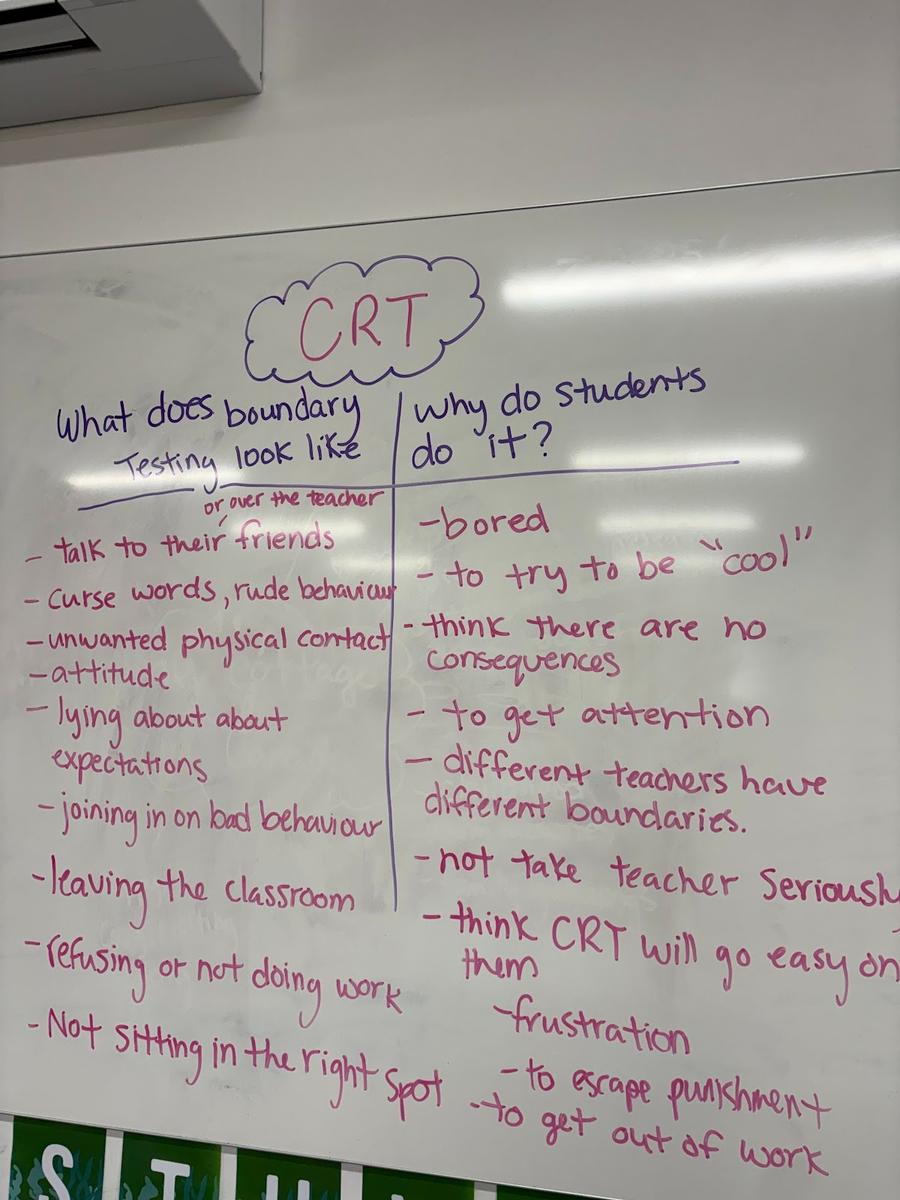 CRT
What does boundary
Testing look like
or over the teacher
- talk to their friends
- curse words, rude behaviour
- unwanted physical contact
- attitude
- lying about about
expectations
- joining in on bad behaviour
- leaving the classroom
- refusing or not doing work
- Not sitting in the right spot
why do students
do it?
- bored
- to try to be "cool"
- think there are no
consequences
- to get attention
- different teachers have
different boundaries.
- not take teacher seriously
- think CRT will go easy on
them
- frustration
- to escape punishment
- to get out of work
S T